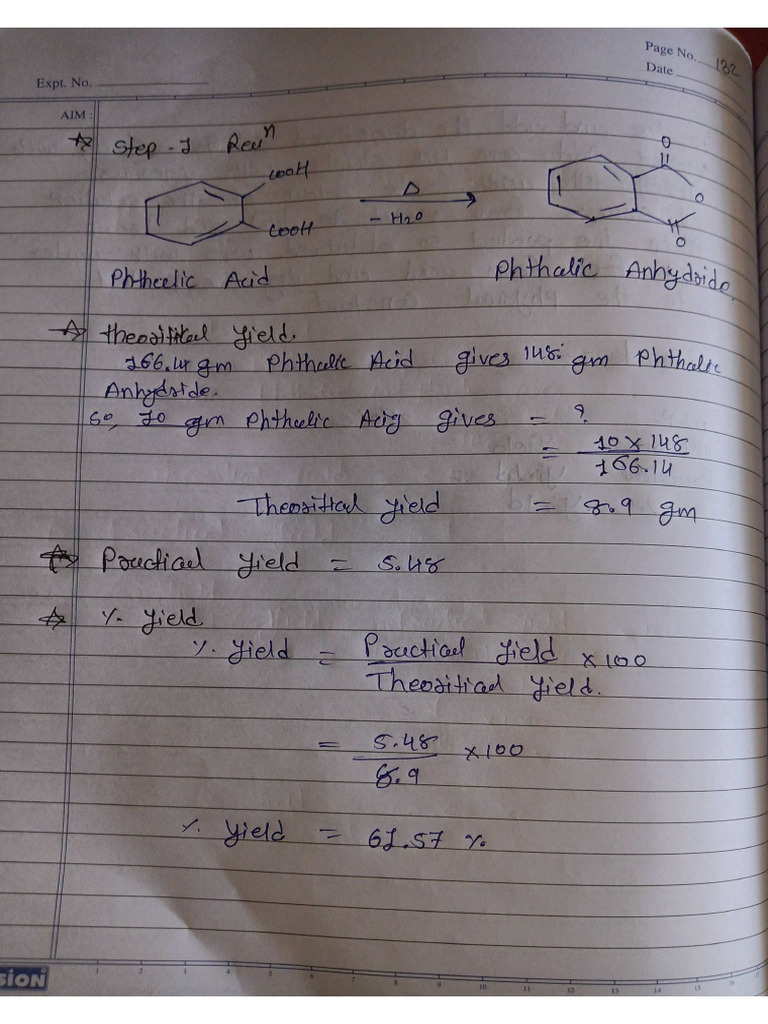 Page No. 132
Expt. No.
Date
AIM :
Step - I Recn
COOH
COOH
Δ
- H2O
O
O
O
Phthalic Acid
Phthalic Anhydride.
theoritical yield.
166.14 gm Phthalic Acid gives 148. gm Phthalic
Anhydride.
So, 10 gm Phthalic Acid gives = ?
= 10 x 148
166.14
Theoritical yield = 8.9 gm
Practical yield = 5.48
% yield.
% yield = Practical yield x 100
Theoritical yield.
= 5.48 x100
8.9
% yield = 61.57 %
SION
1 2 3 4 5 6 7 8 9 10 11 12 13 14 15 16